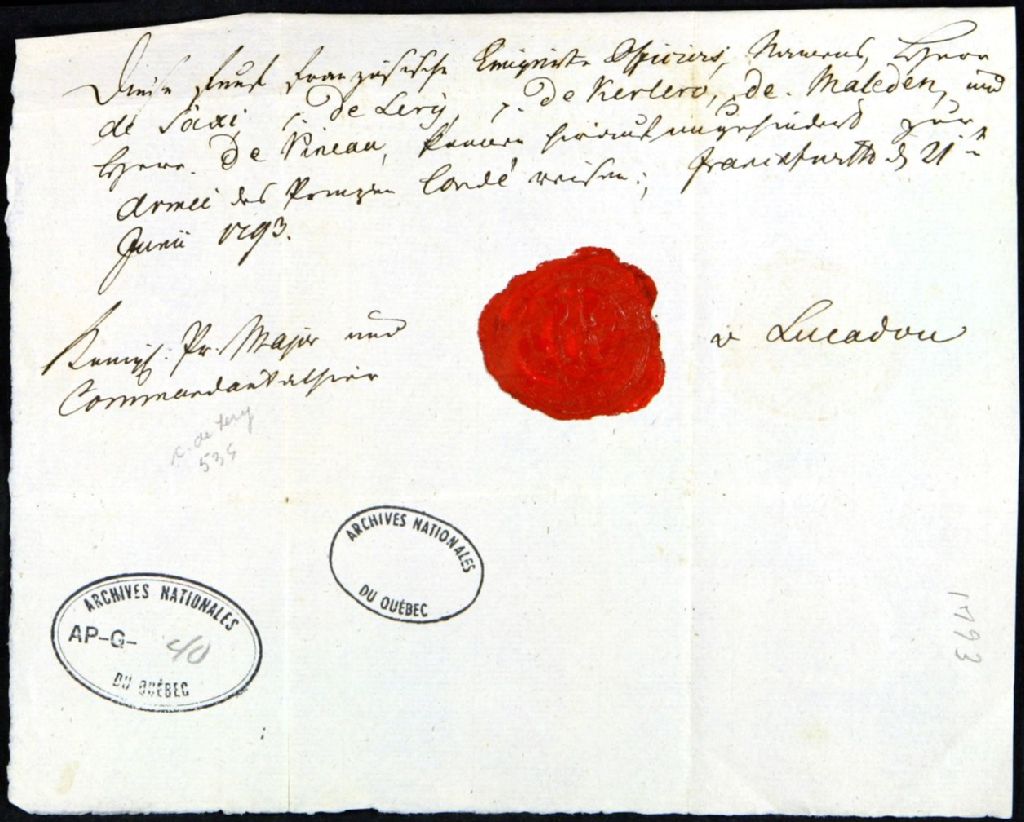 Diese fünf französische Emigrirte Officiers, Namens, Herr
de Saxi, de Lery, de Kerlero, de. Maleden, und
Herr. De Pineau, können hieraus ungehindert zur
Armée des Prinzen Condé reisen; Franckfurth d 21t
Junii 1793.
Königl: Pr. Major und
Commandant alhier
v Lucadou
c. de Lery
535
ARCHIVES NATIONALES
DU QUÉBEC
ARCHIVES NATIONALES
AP-G- 40
DU QUÉBEC
1793